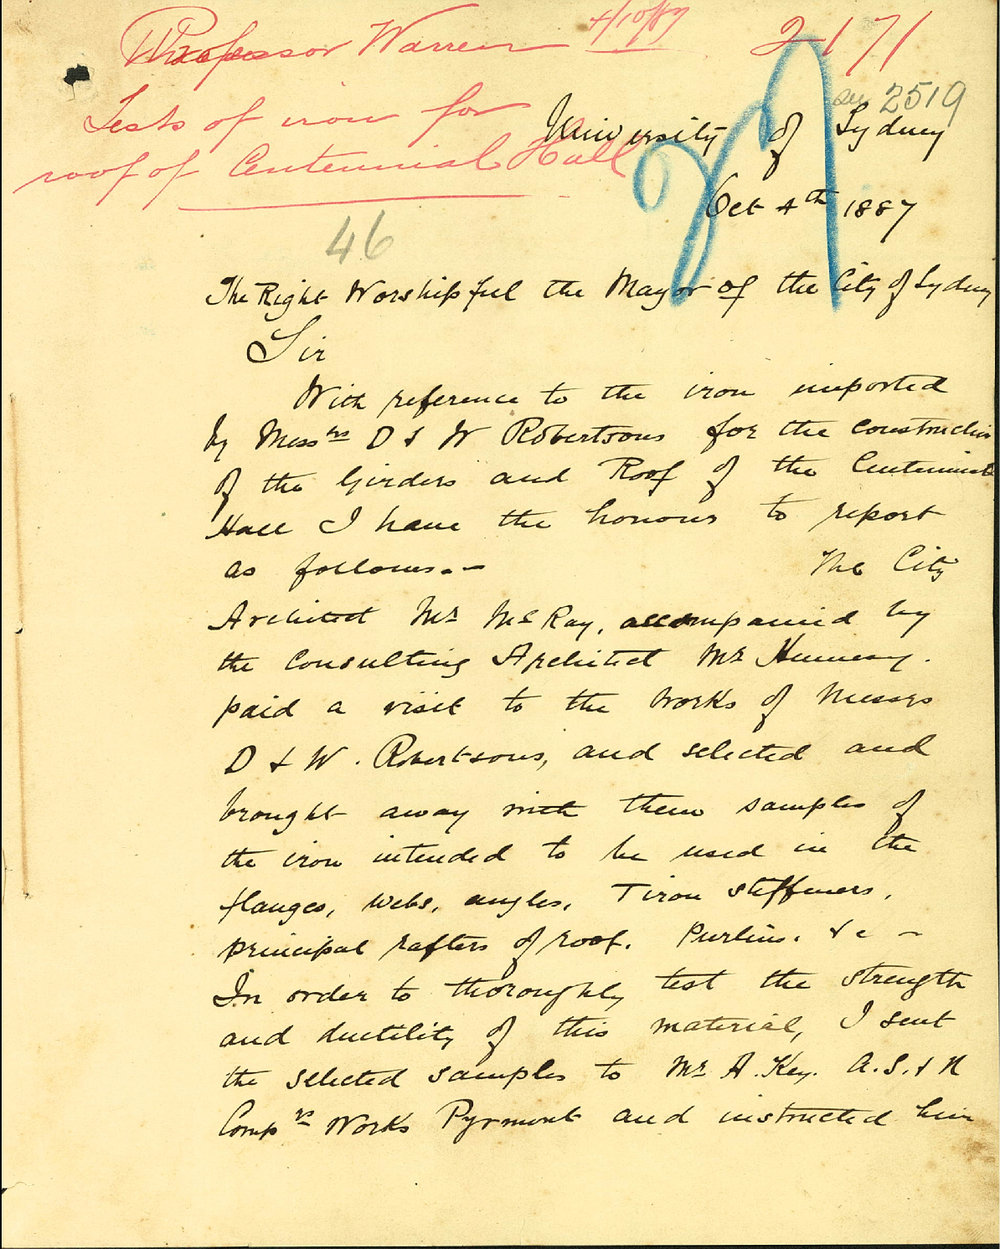 Professor Warren 4/10/87
2171
Tests of iron for
roof of Centennial Hall
see 2519
University of Sydney
Oct 4th 1887
46
The Right Worshipful the Mayor of the City of Sydney
Sir
With reference to the iron imported
by Messrs D & W Robertsons for the construction
of the Girders and Roof of the Centennial
Hall I have the honour to report
as follows.- The City
Architect Mr McRay, accompanied by
the Consulting Architect Mr Hennesy.
paid a visit to the works of Messrs
D & W. Robertsons, and selected and
brought away with them samples of
the iron intended to be used in the
flanges, webs, angles, T iron stiffeners,
principal rafters of roof. Purlins. &c -
In order to thoroughly test the strength
and ductility of this material, I sent
the selected samples to Mr A. Key. A.S. & N
Compys Works Pyrmont and instructed him